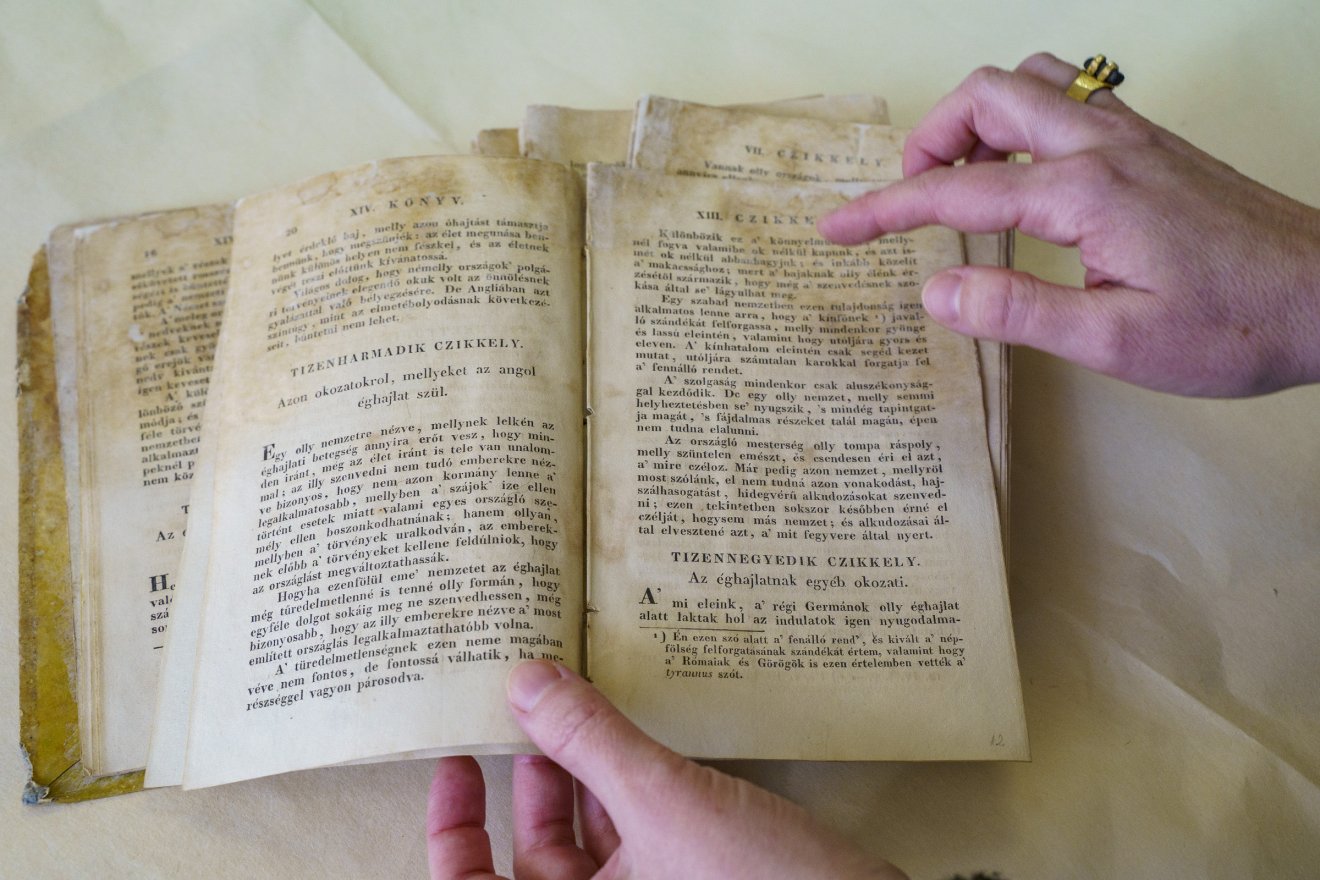 16
XIV
mellyek a' részak
nedveknek
részek keves
nek csak gy
gő erejök van
nedv kivánt
igen keveset
A' kül
lönböző szá
módja; és
féle törvé
nemzetbe
alkalmazt
peknél p
nem köz
T
Az é
He
való
szá
so
20
XIV. KÖNYV.
lyet érdeklő baj, melly azon óhajtást támasztja
bennünk, hogy megszünjék: az élet megunása ben-
nünk különös helyen nem fészkel, és az életnek
végét teszi előttünk kívánatossá.
Világos dolog, hogy némelly országok' polgá-
ri törvényeinek elegendő okuk volt az önölésnek
gyalázattal való bélyegzésére. De Angliában azt
szintúgy, mint az elmetébolyodásnak következé-
seit, büntetni nem lehet.
TIZENHARMADIK CZIKKELY.
Azon okozatokrol, mellyeket az angol
éghajlat szül.
Egy olly nemzetre nézve, mellynek lelkén az
éghajlati betegség annyira erőt vesz, hogy min-
den iránt, még az élet iránt is tele van unalom-
mal; az illy szenvedni nem tudó emberekre néz-
ve bizonyos, hogy nem azon kormány lenne a'
legalkalmatosabb, mellyben a' szájok' ize ellen
történt esetek miatt valami egyes országló sze-
mély ellen boszonkodhatnának; hanem ollyan,
mellyben a' törvények uralkodván, az emberek-
nek előbb a' törvényeket kellene feldúlniok, hogy
az országlást megváltoztathassák.
Hogyha ezenfölül eme' nemzetet az éghajlat
még türedelmetlenné is tenné olly formán, hogy
egyféle dolgot sokáig meg ne szenvedhessen, még
bizonyosabb, hogy az illy emberekre nézve a' most
említett országlás legalkalmaztathatóbb volna.
A' türedelmetlenségnek ezen neme magában
véve nem fontos, de fontossá válhatik, ha me-
részséggel vagyon párosodva.
VII. CZIKKELY
Vannak olly országok, mellyek
XIII. CZIKKE
Különbözik ez a' könnyelmű melly-
nél fogva valamibe ok nélkül kapunk, és azt is-
mét ok nélkül abbanhagyjuk; és inkább közelít
a' makacssághoz; mert a' bajaknak olly élénk ér-
zésétöl származik, hogy még a' szenvedésnek szo-
kása által se' lágyulhat meg.
Egy szabad nemzetben ezen tulajdonság igen
alkalmatos lenne arra, hogy a' kínfönek ¹) javal-
ló szándékát felforgassa, melly mindenkor gyönge
és lassú eleintén, valamint hogy utóljára gyors és
eleven. A' kínhatalom eleintén csak segéd kezet
mutat, utóljára számtalan karokkal forgatja fel
a' fennálló rendet.
A' szolgaság mindenkor csak aluszékonyság-
gal kezdődik. De egy olly nemzet, melly semmi
helyheztetésben se' nyugszik, 's mindég tapintgat-
ja magát, 's fájdalmas részeket talál magán, épen
nem tudna elalunni.
Az országló mesterség olly tompa ráspoly,
melly szüntelen emészt, és csendesen éri el azt,
a' mire czéloz. Már pedig azon nemzet, mellyről
most szólánk, el nem tudná azon vonakodást, haj-
szálhasogatást, hidegvérű alkudozásokat szenved-
ni; ezen tekintetben sokszor későbben érné el
czélját, hogysem más nemzet; és alkudozásai ál-
tal elvesztené azt, a' mit fegyvere által nyert.
TIZENNEGYEDIK CZIKKELY.
Az éghajlatnak egyéb okozati.
A' mi eleink, a' régi Germánok olly éghajlat
alatt laktak hol az indulatok igen nyugodalma-
¹) Én ezen szó alatt a' fenálló rend', és kivált a' nép-
fölség felforgatásának szándékát értem, valamint hogy
a' Rómaiak és Görögök is ezen értelemben vették a'
tyrannus szót.
12